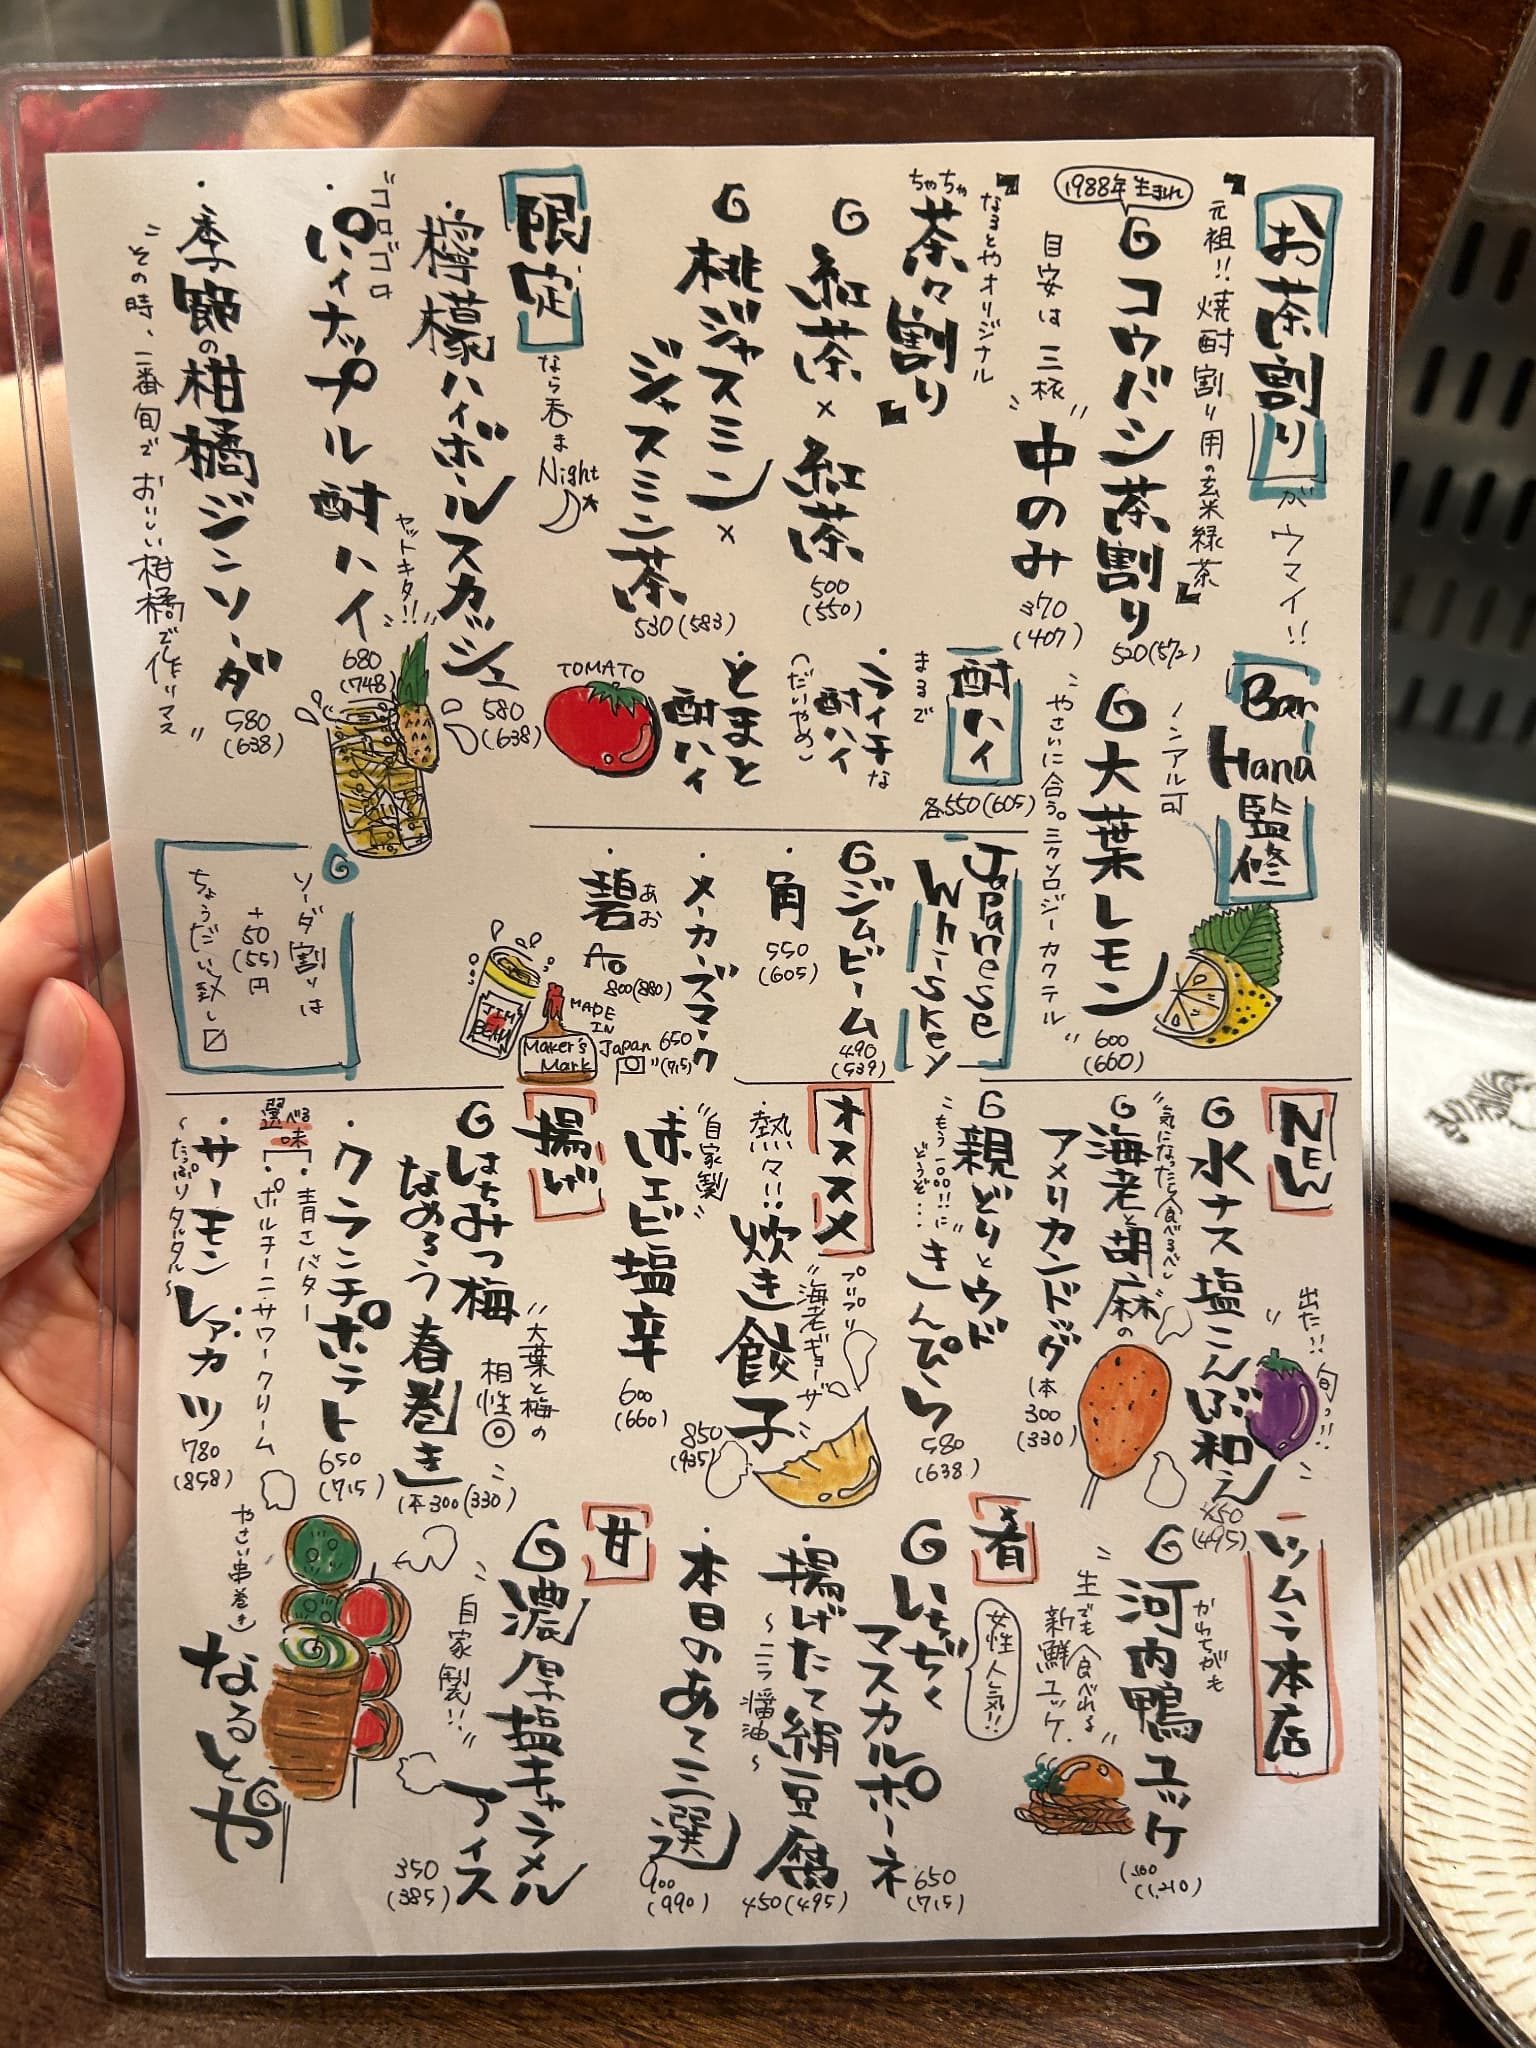 お茶割りがウマイ!!
元祖!!焼酎割り用の玄米緑茶
1988年生まれ
コウバシ茶割り
520(572)
目安は三杯
"中のみ"
370
(407)
なるとやオリジナル
ちゃちゃ
茶々割り
紅茶×紅茶
500
(550)
桃ジャスミン×
ジャスミン茶
530(583)
限定
なら呑まNight
・檸檬ハイボールスカッシュ
580
(638)
"ゴロゴロ
・パイナップル酎ハイ
ヤットキタ!!"
680
(748)
・季節の柑橘ジンソーダ
580
(638)
"その時、一番旬でおいしい柑橘で作リマス"
Bar Hana監修
ノンアル可
大葉レモン
600
(660)
"やさいに合う。ミクソロジーカクテル"
酎ハイ
各550(605)
まるで
・ライチな酎ハイ
(だいやめ)
・とまと酎ハイ
TOMATO
Japanese Whiskey
ジムビーム
490
(539)
・角
550
(605)
・メーカーズマーク
650
(715)
・碧
あお
Ao
800(880)
JIM BEAM
Maker's Mark
MADE IN Japan
ソーダ割りは
+50
(55)円
ちょうだい致し〼
NEW
水ナス塩こんぶ和え
450
(495)
"出た!!旬っ!!"
"気になったら食べるべし"
海老と胡麻の
アメリカンドッグ
1本
300
(330)
親どりとウドの
きんぴら
580
(638)
オススメ
・熱々!!炊き餃子
プリプリ
"海老ギョーザ"
850
(935)
"自家製"
・味エビ塩辛
600
(660)
揚げ
はちみつ梅
なめろう春巻き
"大葉と梅の
相性◎"
1本300(330)
・クランチポテト
650
(715)
選べる味
・青さバター
・ポルチーニサワークリーム
・サーモンレアカツ
780
(858)
~たっぷりタルタル~
ツムラ本店
かわちがも
河内鴨ユッケ
(1,210)
"生でも食べれる
新鮮ユッケ"
肴
女性人気!!
いちぢく
マスカルポーネ
650
(715)
・揚げたて絹豆腐
~ニラ醤油~
450(495)
・本日のあて三選
900
(990)
甘
濃厚塩キャラメル
アイス
"自家製!!"
350
(385)
やさい串巻き
なるとや